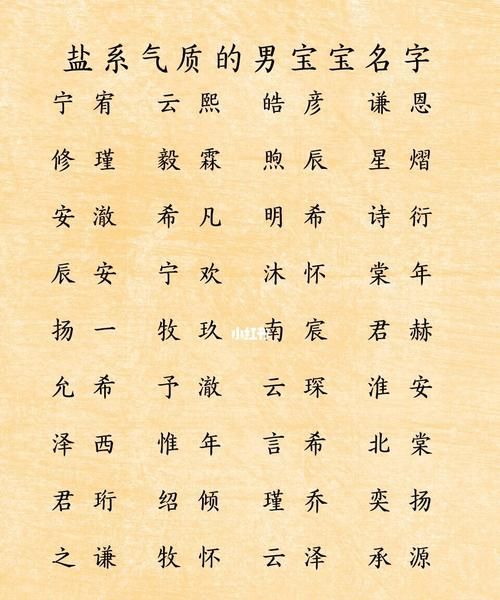 盐系气质的男宝宝名字
宁宥 云熙 皓彦 谦恩
修瑾 毅霖 煦辰 星熠
安澈 希凡 明希 诗衍
辰安 宁欢 沐怀 棠年
扬一 牧玖 南宸 君赫
允希 予澈 云琛 淮安
泽西 惟年 言希 北棠
君珩 绍倾 瑾乔 奕扬
之谦 牧怀 云泽 承源
小红书